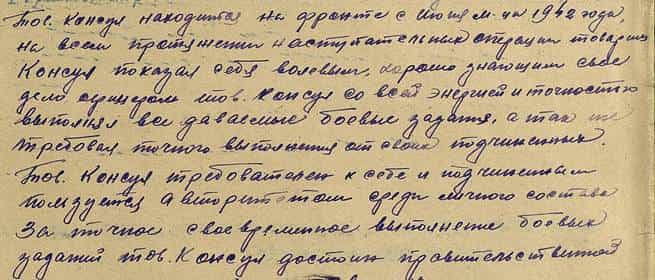 Тов. Консул находится на фронте с июня м-ца 1942 года,
на всем протяжении наступательных операций товарищ
Консул показал себя волевым, хорошо знающим свое
дело офицером тов. Консул со всей энергией и точностью
выполнял все даваемые боевые задания, а так же
требовал точного выполнения от своих подчиненных.
Тов. Консул требователен к себе и подчиненным
пользуется авторитетом среди личного состава
За точное своевременное выполнение боевых
заданий тов. Консул достоин правительственной